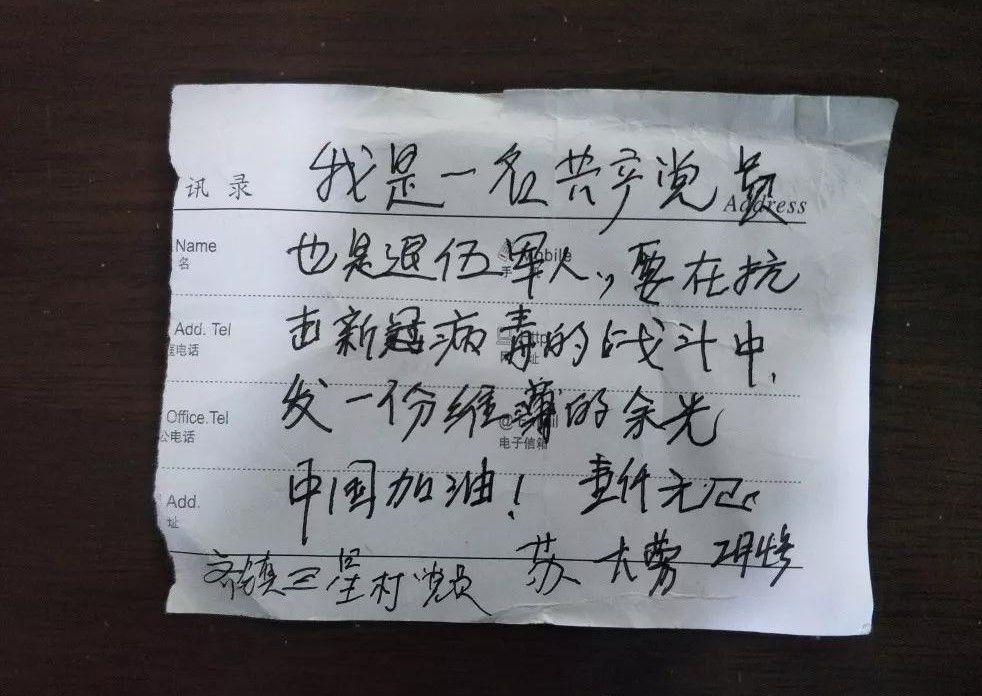 讯 录 我是一名共产党员
Address
Name
名
也是退伍军人,要在抗
Add. Tel
电话
击新冠病毒的战斗中,
Office.Tel
公电话
发一份维薄的余光
电子信箱
中国加油! 壹仟元
Add.
址
齐镇三星村党员 苏大勇 2月4号